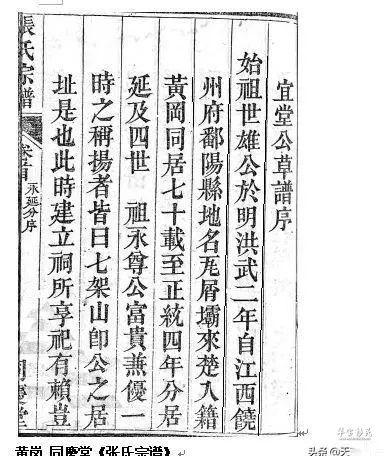 宜堂公草譜序
始祖世雄公於明洪武二年自江西饒
州府鄱陽縣地名瓦屑壩來楚入籍
黃岡同居七十載至正統四年分居
延及四世 祖永尊公富貴兼優一
時之稱揚者皆曰七架山卽公之居
址是也此時建立祠所享祀有賴豈
張氏宗譜
卷首
永延分序
堂
黄岗 同慶堂《张氏宗谱》
头条@天